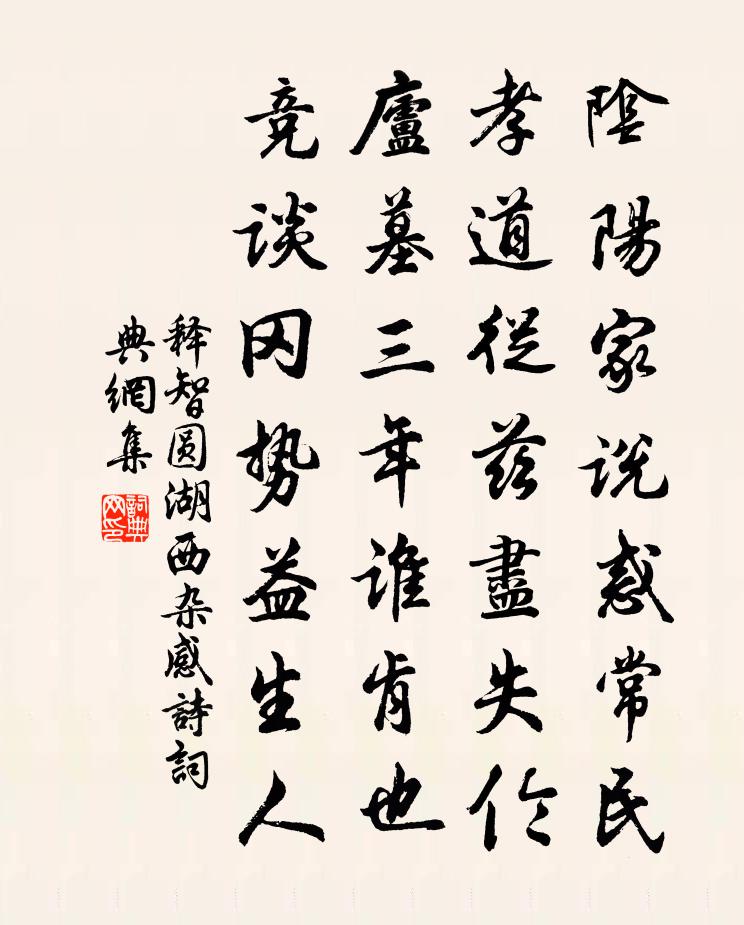 陰陽家说惑常民
孝道從兹盡失伦
廬墓三年谁肯也
竞谈冈势益生人
释智圆湖西杂感詩詞
典網集
詞典
网印